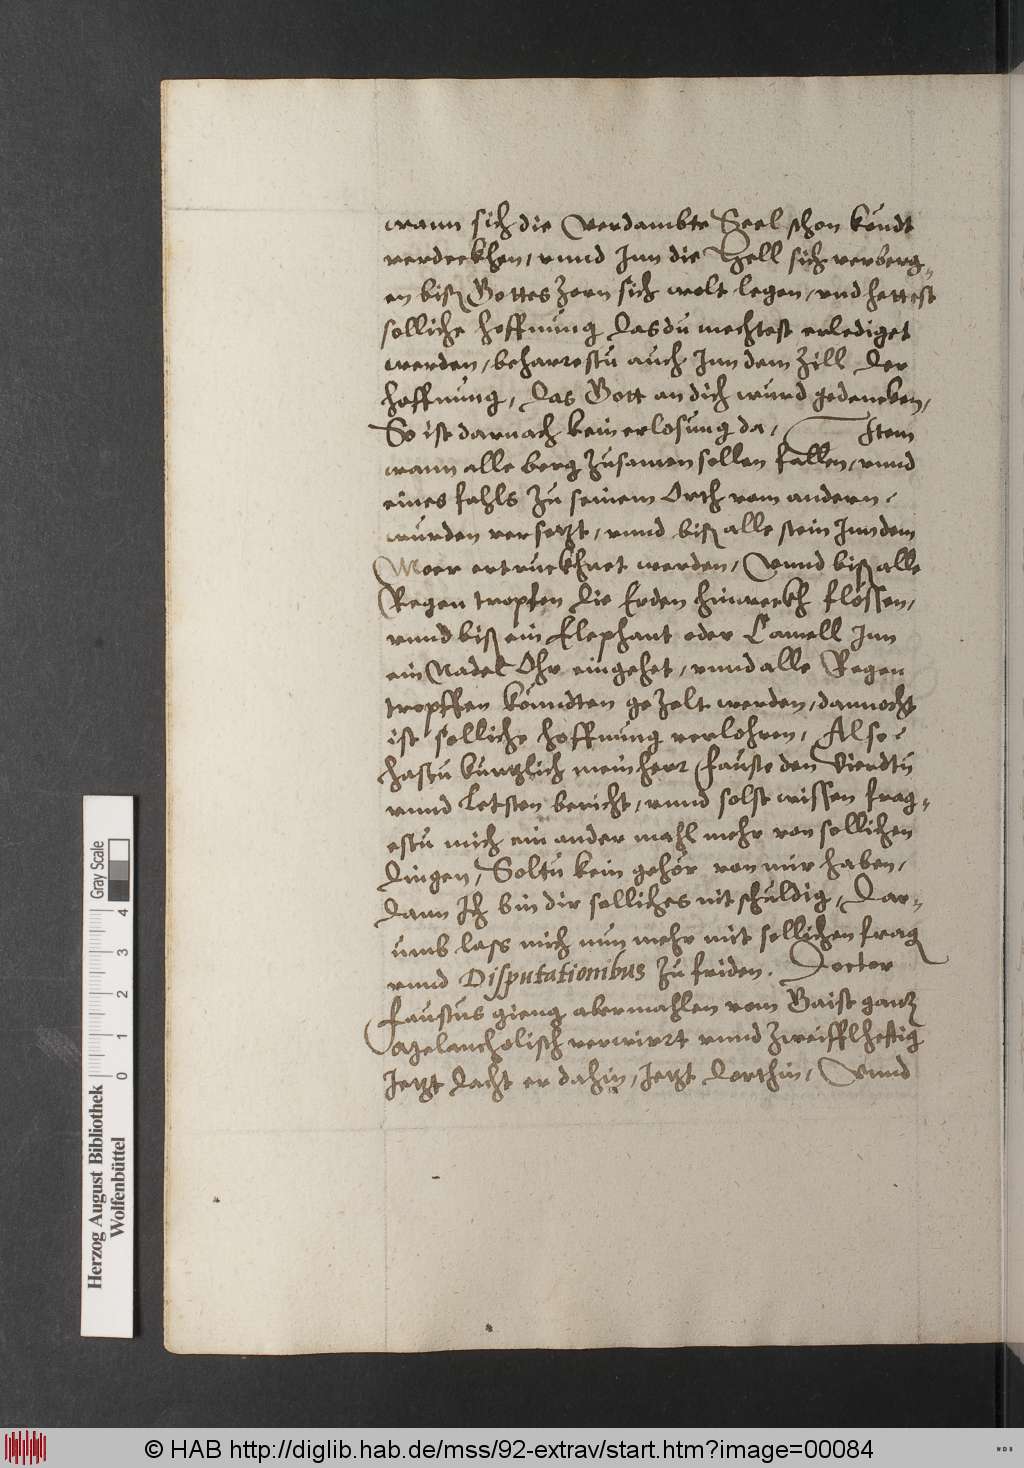 wann sich die Verdambte Seel schon kündt
verdeckhen, vnnd Inn die Hell sich verberg-
en biß Gottes Zorn sich wolt legen, vnd hettest
solliche hoffnung das du mechtest erlediget
werden, beharrestu auch Inn dem Zill der
hoffnung, das Gott an dich wurd gedencken,
So ist darnach kein erlosung da, Item
wann alle berg Zusamen sollen fallen, vnnd
eines fahls Zu seinem Orth vom andern,
wurden versetzt, vnnd biß alle stein Inn dem
Moer ertruckhnet werden, Vnnd biß alle
Regen tropfen die Erden hinweckh flössen,
vnnd biß ein Elephant oder Camell Inn
ein Nadel Ohr eingehet, vnnd alle Regen
tropffen künndten geZelt werden, dannocht
ist solliche hoffnung verlohren, Also
hastu kurtzlich mein herr Fauste den Vierdtn
vnnd Letsten bericht, vnnd solst wissen frag-
estu mich ein ander mahl mehr von sollichen
dingen, Soltu kein gehör von mir haben,
dann Ich bin dir solliches nit schuldig, Dar-
umb lass mich nun mehr mit sollichen frag
vnnd Disputationibus Zu friden. Doctor
Faustus gieng abermahlen vom Gaist gantz
Melancholisch verwirrt vnnd Zweifflhefftig
Jetzt dacht er dahin, Jetzt dorthin, Vnnd
Herzog August Bibliothek
Wolfenbüttel
0 1 2 3 4
Gray Scale
© HAB http://diglib.hab.de/mss/92-extrav/start.htm?image=00084
WDB